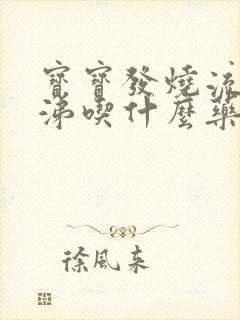 寶寶發燒流
涕喫什麼藥
徐風來